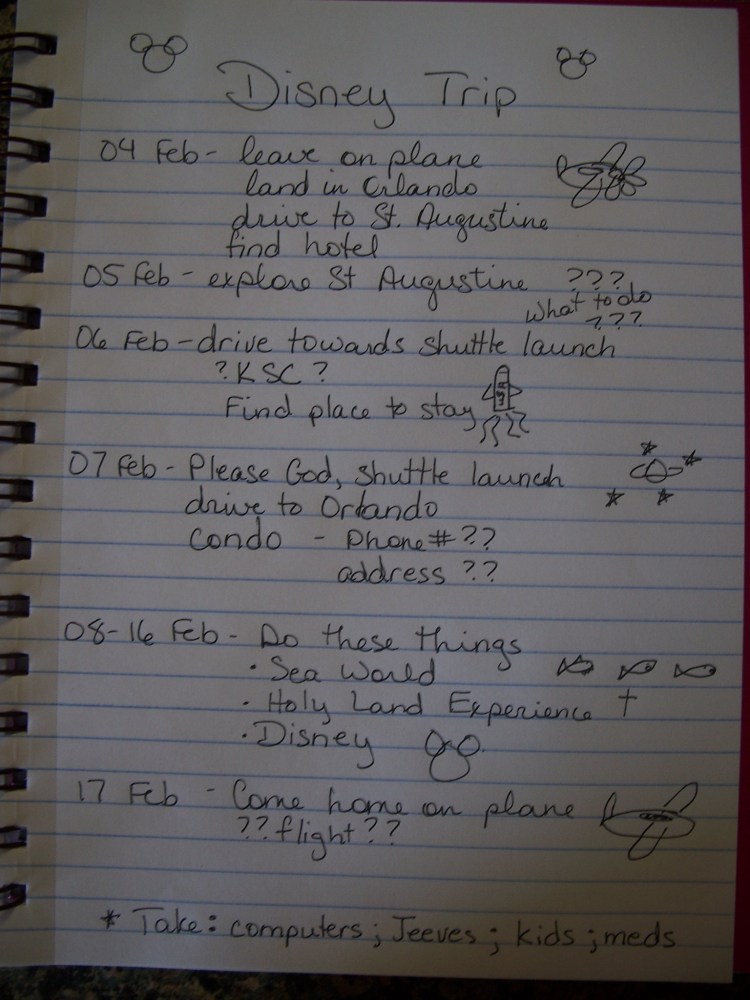 Disney Trip
04 Feb - leave on plane
land in Orlando
drive to St. Augustine
find hotel
05 Feb - explore St Augustine ???
What to do
???
06 Feb - drive towards shuttle launch
? KSC ?
Find place to stay
07 Feb - Please God, shuttle launch
drive to Orlando
Condo - Phone # ??
address ??
08-16 Feb - Do these things
· Sea World
· Holy Land Experience
· Disney
17 Feb - Come home on plane
?? flight ??
* Take: computers; Jeeves; kids; meds